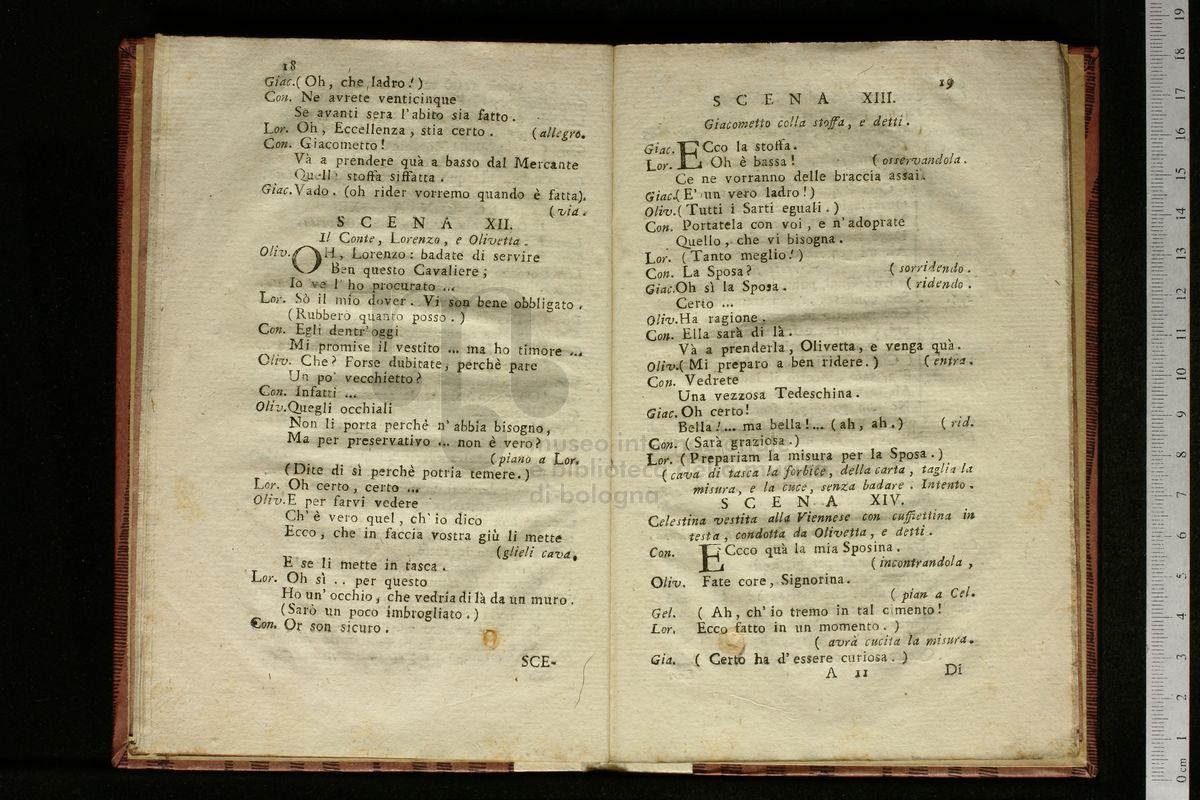 18
Giac.( Oh, che ladro! )
Con. Ne avrete venticinque
Se avanti sera l'abito sia fatto.
Lor. Oh, Eccellenza, stia certo. (allegro.
Con. Giacometto!
Và a prendere quà a basso dal Mercante
Quella stoffa siffatta.
Giac.Vado. (oh rider vorremo quando è fatta).
(via.
SCENA XII.
Il Conte, Lorenzo, e Olivetta.
Oliv. OH, Lorenzo: badate di servire
Ben questo Cavaliere;
Io ve l'ho procurato ...
Lor. Sò il mio dover. Vi son bene obbligato.
(Rubberò quanto posso.)
Con. Egli dentr'oggi
Mi promise il vestito ... ma ho timore ...
Oliv. Che? Forse dubitate, perchè pare
Un po' vecchietto?
Con. Infatti ...
Oliv.Quegli occhiali
Non li porta perchè n'abbia bisogno,
Ma per preservativo ... non è vero?
(piano a Lor.
(Dite di sì perchè potria temere.)
Lor. Oh certo, certo ...
Oliv.E per farvi vedere
Ch'è vero quel, ch'io dico
Ecco, che in faccia vostra giù li mette
(glieli cava.
E se li mette in tasca.
Lor. Oh sì .. per questo
Ho un'occhio, che vedria di là da un muro.
(Sarò un poco imbrogliato.)
Con. Or son sicuro.
SCE-
19
SCENA XIII.
Giacometto colla stoffa, e detti.
Giac. ECco la stoffa.
Lor. Oh è bassa! (osservandola.
Ce ne vorranno delle braccia assai.
Giac.( E' un vero ladro!)
Oliv.( Tutti i Sarti eguali.)
Con. Portatela con voi, e n'adoprate
Quello, che vi bisogna.
Lor. (Tanto meglio!)
Con. La Sposa? (sorridendo.
Giac.Oh sì la Sposa. (ridendo.
Certo ...
Oliv.Ha ragione.
Con. Ella sarà di là.
Và a prenderla, Olivetta, e venga quà.
Oliv.( Mi preparo a ben ridere.) (entra.
Con. Vedrete
Una vezzosa Tedeschina.
Giac. Oh certo!
Bella!... ma bella!... (ah, ah.) (rid.
Con. (Sarà graziosa.)
Lor. (Prepariam la misura per la Sposa.)
(cava di tasca la forbice, della carta, taglia la
misura, e la cuce, senza badare. Intento.
SCENA XIV.
Celestina vestita alla Viennese con cuffiettina in
testa, condotta da Olivetta, e detti.
Con. ECcco quà la mia Sposina.
(incontrandola,
Oliv. Fate core, Signorina.
(pian a Cel.
Gel. (Ah, ch'io tremo in tal cimento!
Lor. Ecco fatto in un momento.)
(avrà cucita la misura.
Gia. (Certo ha d'essere curiosa.)
A 11
Di
museo
biblioteca
di bologna
19
18
17
16
15
14
13
12
11
10
9
8
7
6
5
4
3
2
1
0 cm